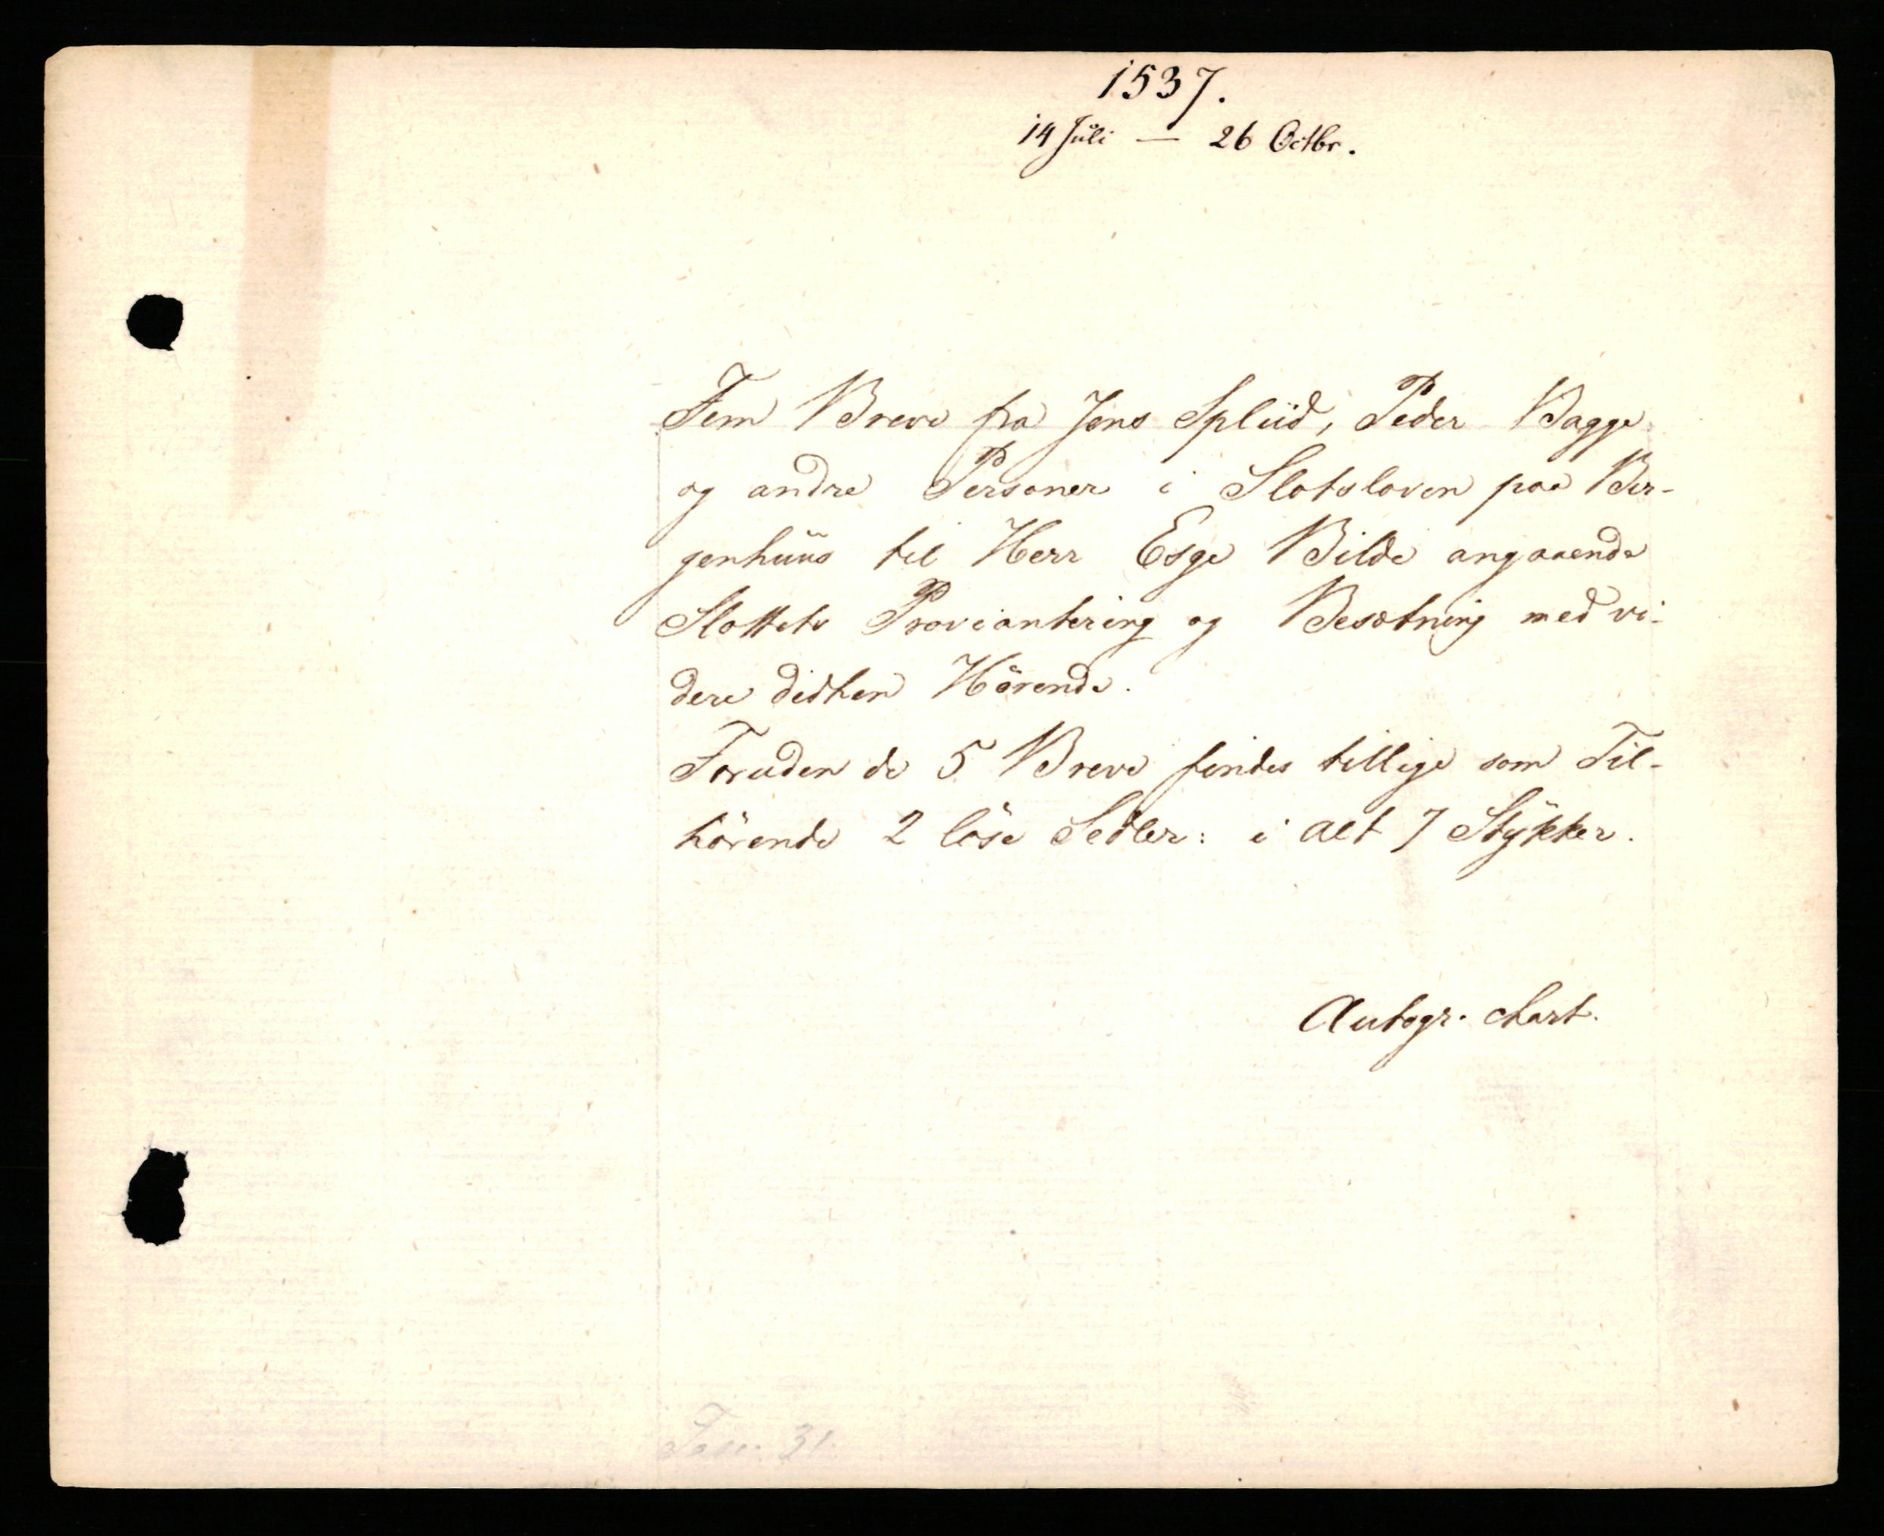 1537.
14 Júli — 26 Octbr.
Fem Breve fra Jens Spliid, Peder Bagge
og andre Personer i Slotsloven paa Ber-
genhüus til Herr Esge Bilde angaaende
Slottets Proviantering og Besætning med vi-
dere didhen Hörende.
Foruden de 5 Breve findes tillige som Til-
hörende 2 löse Sedler: i alt 7 Stÿkker.
Autogr. chart.
Fasc. 31.